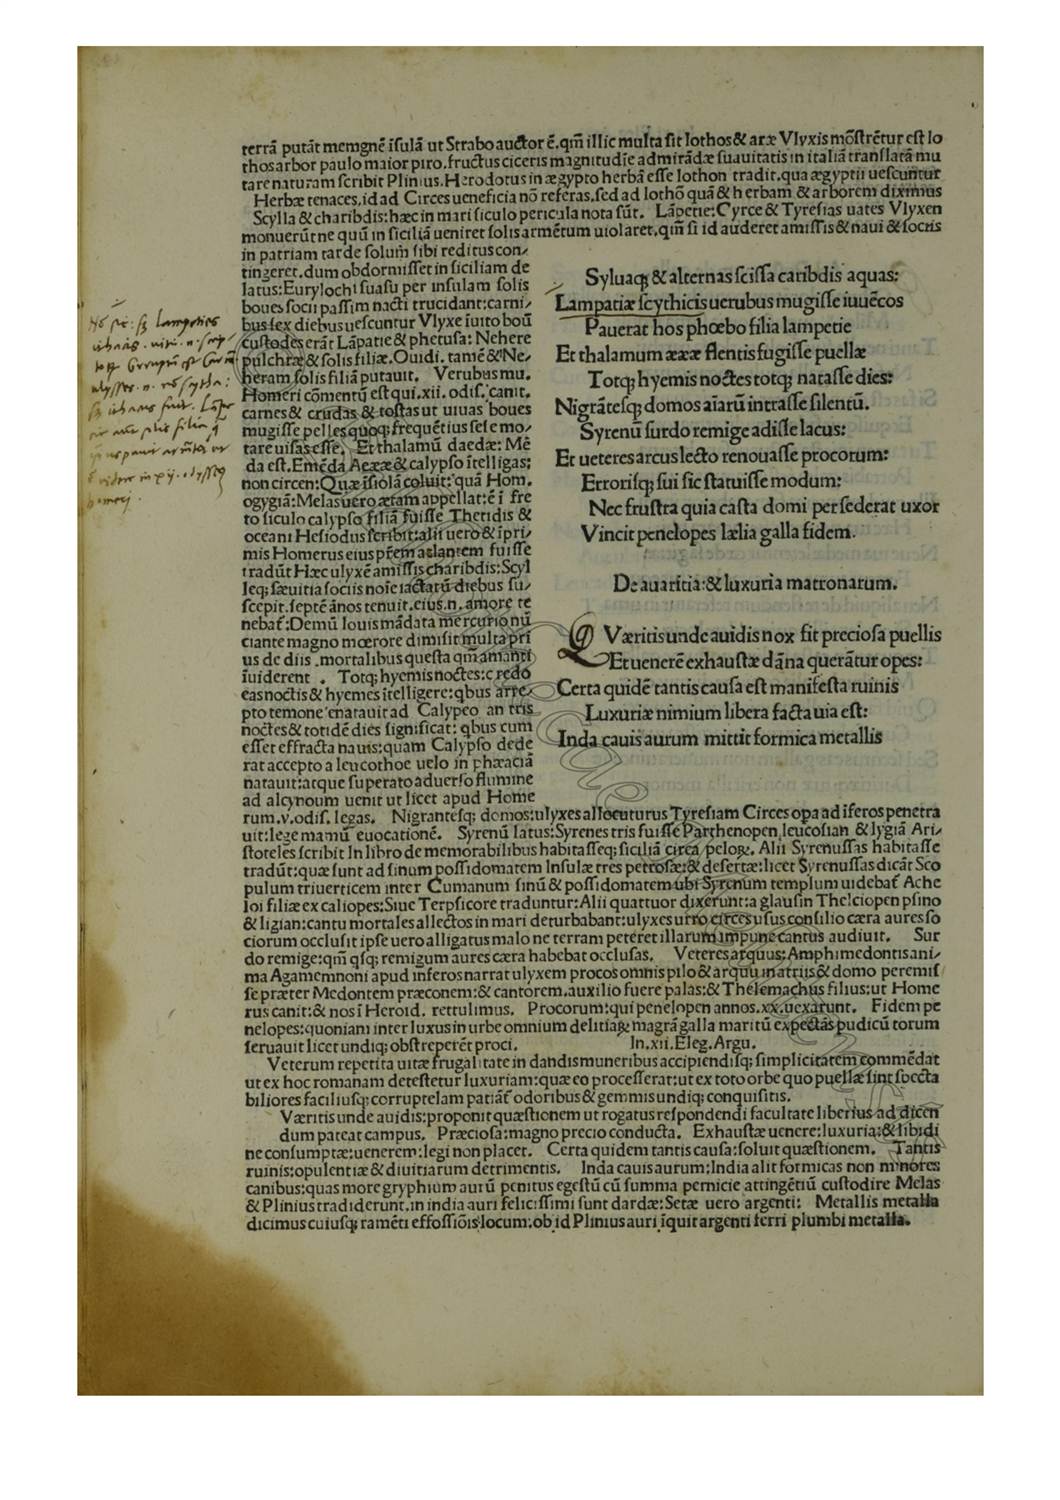 terrā putāt memgnē īsulā ut Strabo auctor ē.qm̄ illic multa sit lothos & aræ Vlyxis mōstrētur est lo
thos arbor paulo maior piro.fructus ciceris magnitudīe admirādæ suauitatis in italiā translatā mu
tare naturam scribit Plinius.Herodotus in ægypto herbā esse lothon tradit.qua ægyptii uescuntur
Herbæ tenaces.id ad Circes ueneficia nō referas.sed ad lothō quā & herbam & arborem diximus
Scylla & charibdis:hæc in mari siculo pericula nota sūt. Lāpetie:Cyrce & Tyresias uates Vlyxen
monuerūt ne quū in siciliā ueniret solis armētum uiolaret.qm̄ si id auderet amissis & naui & sociis
in patriam tarde solum̄ sibi reditus con/
tingeret.dum obdormisset in siciliam de
latus:Eurylochi suasu per insulam solis
boues socii passim nacti trucidant:carni/
bus sex diebus uescuntur Vlyxe īuito boū
custodes erāt Lāpatie & phetusa: Nehere
pulchræ & solis filiæ.Ouidi. tamē & Ne/
heram solis filiā putauit. Verubus mu.
Homeri cōmentū est qui.xii. odiſ. canit.
carnes & crudas & tostas ut uiuas boues
mugisse pelles quoq; frequētius sese mo/
tare uisas esse. Et thalamū daedæ: Mē
da est.Emēda Aeææ & calypso ītelligas;
non circen: Quæ īsiolā coluit: quā Hom.
ogygiā: Melas uero ætam appellat:ē ī fre
to siculo calypso filiā fuisse Thetidis &
oceani Hesiodus scribit:alii uero & īpri/
mis Homerus eius prēm atlantem fuisse
tradūt Hæc ulyxē amissis charibdis: Scyl
leq; sæuitia sociis noīe iactatū diebus su/
scepit.septē ānos tenuit.eius.n. amore te
nebat̄: Demū Iouis mādata mercurio nū
ciante magno mœrore dimisit multa pri
us de diis .mortalibus questa qm̄ amanti
īuiderent . Totq; hyemis noctes:c redo
eas noctis & hyemes ītelligere:qbus arre/
pto temone enatauit ad Calypeo an tris
noctes & totidē dies significat: qbus cum
esset effracta nauis: quam Calypso dede
rat accepto a leucothoe uelo in phæaciā
natauit:atque superato aduerso flumine
ad alcynoum uenit ut licet apud Home
Syluaq; & alternas scissa caribdis aquas:
Lampatiæ scythicis uerubus mugisse iuuēcos
Pauerat hos phœbo filia lampetie
Et thalamum æææ flentis fugisse puellæ
Totq; hyemis noctes totq; natasse dies:
Nigrātesq; domos aīarū intrasse silentū.
Syrenū surdo remige adisse lacus:
Et ueteres arcus lecto renouasse procorum:
Errorisq; sui sic statuisse modum:
Nec frustra quia casta domi persederat uxor
Vincit penelopes lælia galla fidem.
De auaritia:& luxuria matronarum.
Q Væritis unde auidis nox fit preciosa puellis
Et uenerē exhaustæ dāna querātur opes:
Certa quidē tantis causa est manifesta ruinis
Luxuriæ nimium libera facta uia est:
Inda cauis aurum mittit formica metallis
rum.v.odiſ. legas. Nigrantesq; domos:ulyxes allocuturus Tyresiam Circes opa ad īferos penetra
uit:lege mamū euocationē. Syrenū latus: Syrenes tris fuisse Parthenopen leucosian & lygiā Ari/
stoteles scribit In libro de memorabilibus habitasseq; siciliā circa peloꝝ. Alii Syrenussas habitasse
tradūt:quæ sunt ad sinum possidomatem Insulæ tres petrosæ:& desertæ:licet Syrenussas dicāt Sco
pulum triuerticem inter Cumanum sinū & possidomatem ubi Syrenum templum uidebat̄ Ache
loi filiæ ex caliopes: Siue Terpsicore traduntur: Alii quattuor dixerunt:a glausin Thelciopen psino
& ligian:cantu mortales allectos in mari deturbabant:ulyxes uero circes usus consilio cæra aures so
ciorum occlusit ipse uero alligatus malo ne terram peteret illarum impune cantus audiuit. Sur
do remige:qm̄ qsq; remigum aures cæra habebat occlusas. Veteres arquus: Amphimedontis ani/
ma Agamemnoni apud inferos narrat ulyxem procos omnis pilo & arquu in atriis & domo peremiſ
se præter Medontem præconem:& cantorem.auxilio fuere palas:& Thelemachus filius:ut Home
rus canit:& nos ī Heroid. rettulimus. Procorum:qui penelopen annos.xx.uexarunt. Fidem pe
nelopes:quoniam inter luxus in urbe omnium delitiaꝝ magrā galla maritū expectās pudicū torum
seruauit licet undiq; obstreperēt proci. In.xii.Eleg.Argu.
Veterum repetita uitæ frugalitate in dandis muneribus accipiendisq; simplicitatem commēdat
ut ex hoc romanam detestetur luxuriam:quæ eo processerat:ut ex toto orbe quo puellæ sint spectā
biliores faciliusq; corruptelam patiāt̄ odoribus & gemmis undiq; conquisitis.
Væritis unde auidis:proponit quæstionem ut rogatus respondendi facultate liberius ad dicen
dum pateat campus. Præciosa:magno precio conducta. Exhaustæ uenere:luxuria:& libidi
ne consumptæ:uenerem:legi non placet. Certa quidem tantis causa:soluit quæstionem. Tantis
ruinis:opulentiæ & diuitiarum detrimentis. Inda cauis aurum:India alit formicas non minores
canibus:quas more gryphium aurū penitus egestū cū summa pernicie attingētiū custodire Melas
& Plinius tradiderunt.in india auri felicissimi sunt dardæ: Setæ uero argenti: Metallis metalla
dicimus cuiusq; ramēti effossiōis locum:ob id Plinius auri īquit argenti ferri plumbi metalla.